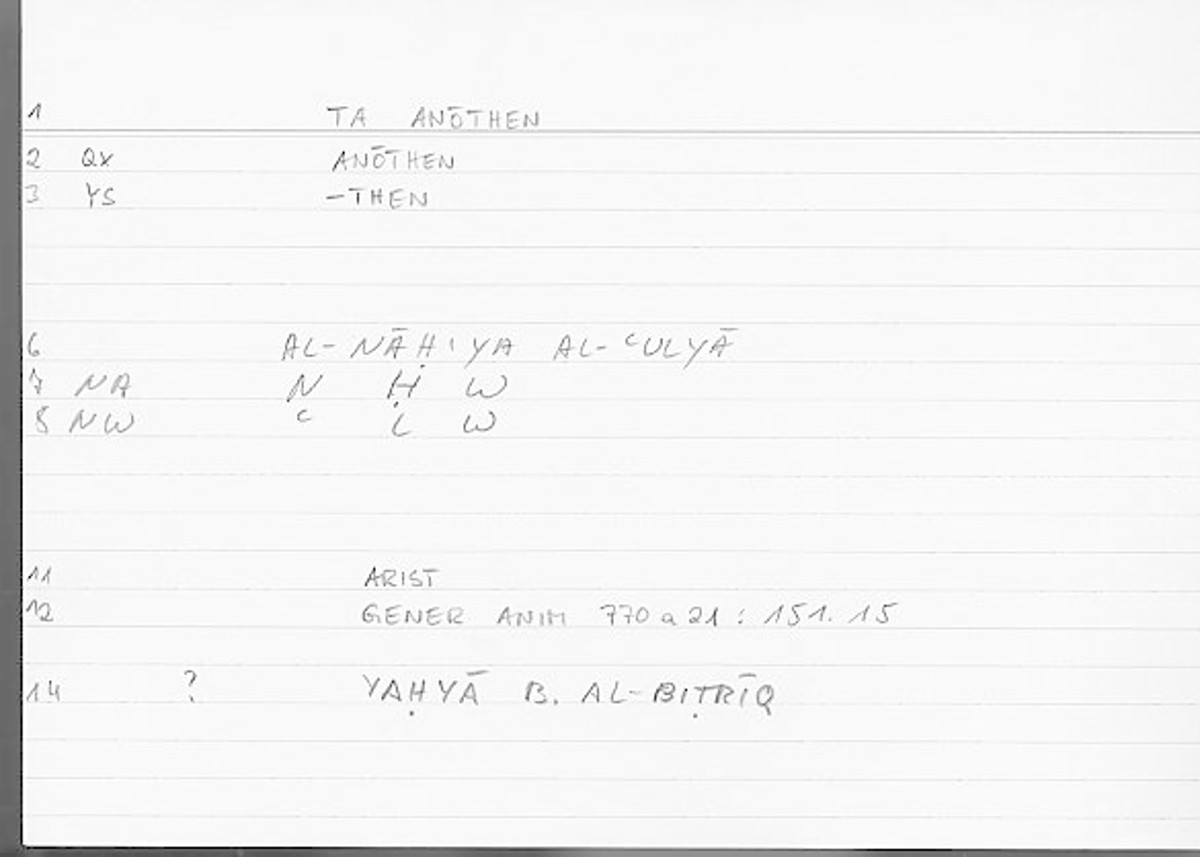 1 TA ANŌTHEN
2 QX ANŌTHEN
3 YS -THEN
6 AL-NĀḤIYA AL-ʿULYĀ
7 NA N Ḥ W
8 NW ʿ L W
11 ARIST
12 GENER ANIM 770 a 21 : 151. 15
14 ? YAḤYĀ B. AL-BIṬRĪQ